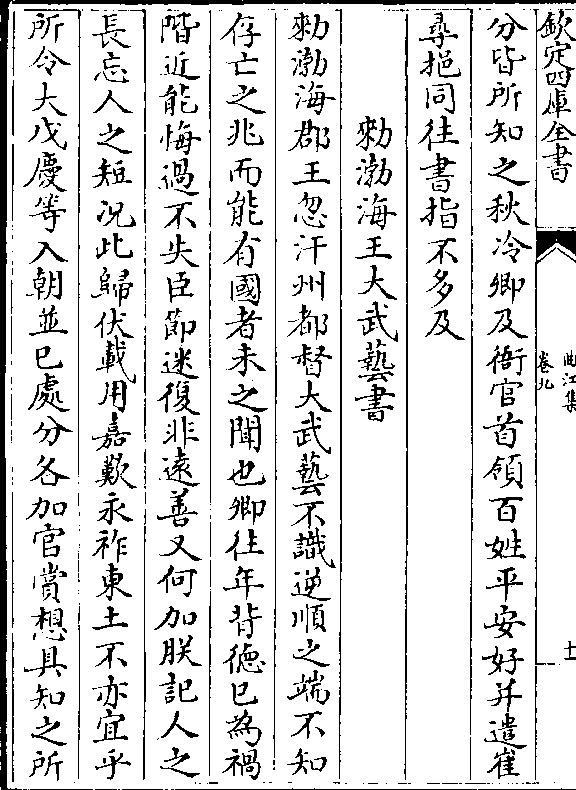 欽定四庫全書
曲江集
卷九
十一
分皆所知之秋冷卿及衙官首領百姓平安好并遣崔
尋挹同往書指不多及
勑渤海王大武藝書
勑渤海郡王忽汗州都督大武藝不識逆順之端不知
存亡之兆而能有國者未之聞也卿往年背德已為禍
階近能悔過不失臣節迷復非遠善又何加朕記人之
長忘人之短況此歸伏載用嘉歎永祚東土不亦宜乎
所令大戊慶等入朝並已處分各加官賞想具知之所